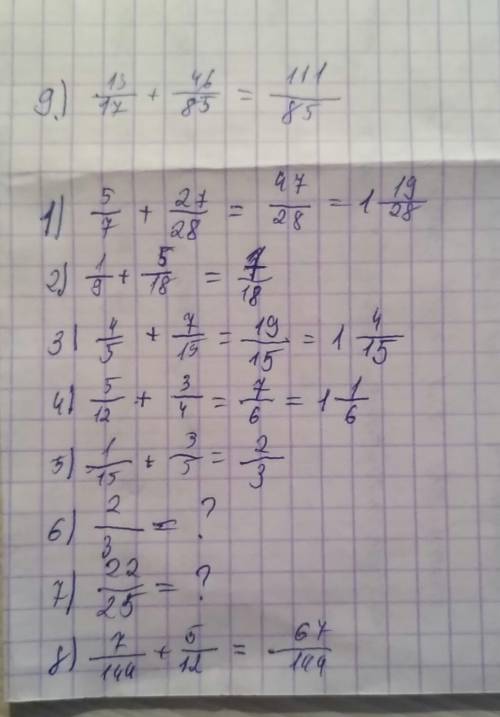 9.) 13/17 + 46/85 = 111/85
1) 5/7 + 27/28 = 47/28 = 1 19/28
2) 1/9 + 5/18 = 7/18
3) 4/5 + 7/15 = 19/15 = 1 4/15
4) 5/12 + 3/4 = 7/6 = 1 1/6
5) 1/15 + 3/5 = 2/3
6) 2/3 = ?
7) 22/25 = ?
8) 7/144 + 5/12 = 67/144